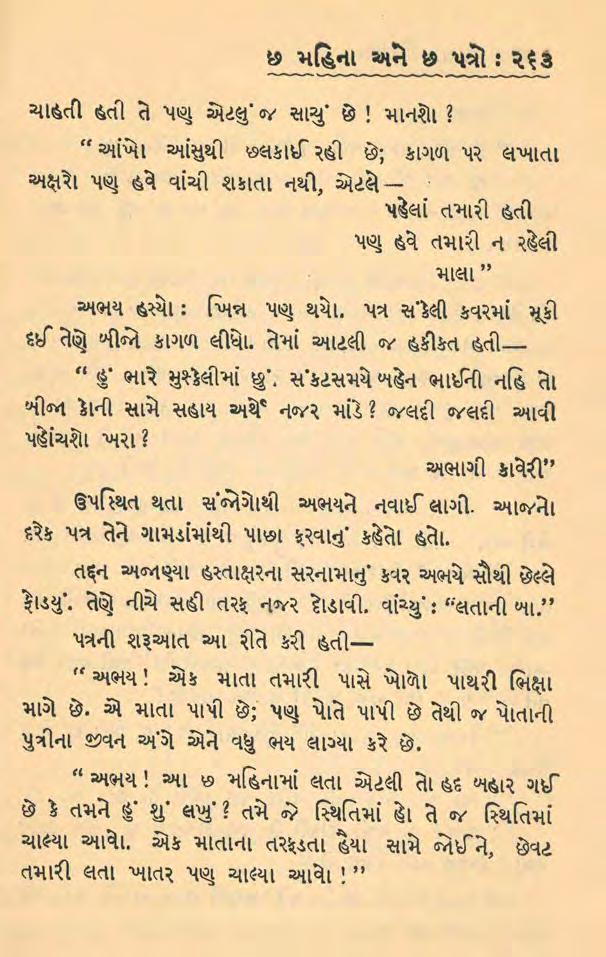 છ મહિના અને છ પત્રો : ૨૬૩
ચાહતી હતી તે પણ એટલું જ સાચું છે ! માનશો ?
“ આંખો આંસુથી છલકાઈ રહી છે; કાગળ પર લખાતા
અક્ષરો પણ હવે વાંચી શકાતા નથી, એટલે —
પહેલાં તમારી હતી
પણ હવે તમારી ન રહેલી
માલા ”
અભય હસ્યો : ખિન્ન પણ થયો. પત્ર સંકેલી કવરમાં મૂકી
દઈ તેણે બીજો કાગળ લીધો. તેમાં આટલી જ હકીકત હતી—
“ હું ભારે મુશ્કેલીમાં છું. સંકટસમયે બહેન ભાઈની નહિ તો
બીજા કોની સામે સહાય અર્થે નજર માંડે ? જલદી જલદી આવી
પહોંચશો ખરા ?
અભાગી કાવેરી”
ઉપસ્થિત થતા સંજોગોથી અભયને નવાઈ લાગી. આજનો
દરેક પત્ર તેને ગામડાંમાંથી પાછા ફરવાનું કહેતો હતો.
તદ્દન અજાણ્યા હસ્તાક્ષરના સરનામાનું કવર અભયે સૌથી છેલ્લે
ફોડયું. તેણે નીચે સહી તરફ નજર દોડાવી. વાંચ્યું : “લતાની બા.”
પત્રની શરૂઆત આ રીતે કરી હતી—
“ અભય ! એક માતા તમારી પાસે ખોળો પાથરી ભિક્ષા
માગે છે. એ માતા પાપી છે; પણ પોતે પાપી છે તેથી જ પોતાની
પુત્રીના જીવન અંગે એને વધુ ભય લાગ્યા કરે છે.
“ અભય ! આ છ મહિનામાં લતા એટલી તો હદ બહાર ગઈ
છે કે તમને હું શું લખું ? તમે જે સ્થિતિમાં હો તે જ સ્થિતિમાં
ચાલ્યા આવો. એક માતાના તરફડતા હૈયા સામે જોઈને, છેવટ
તમારી લતા ખાતર પણ ચાલ્યા આવો ! ”